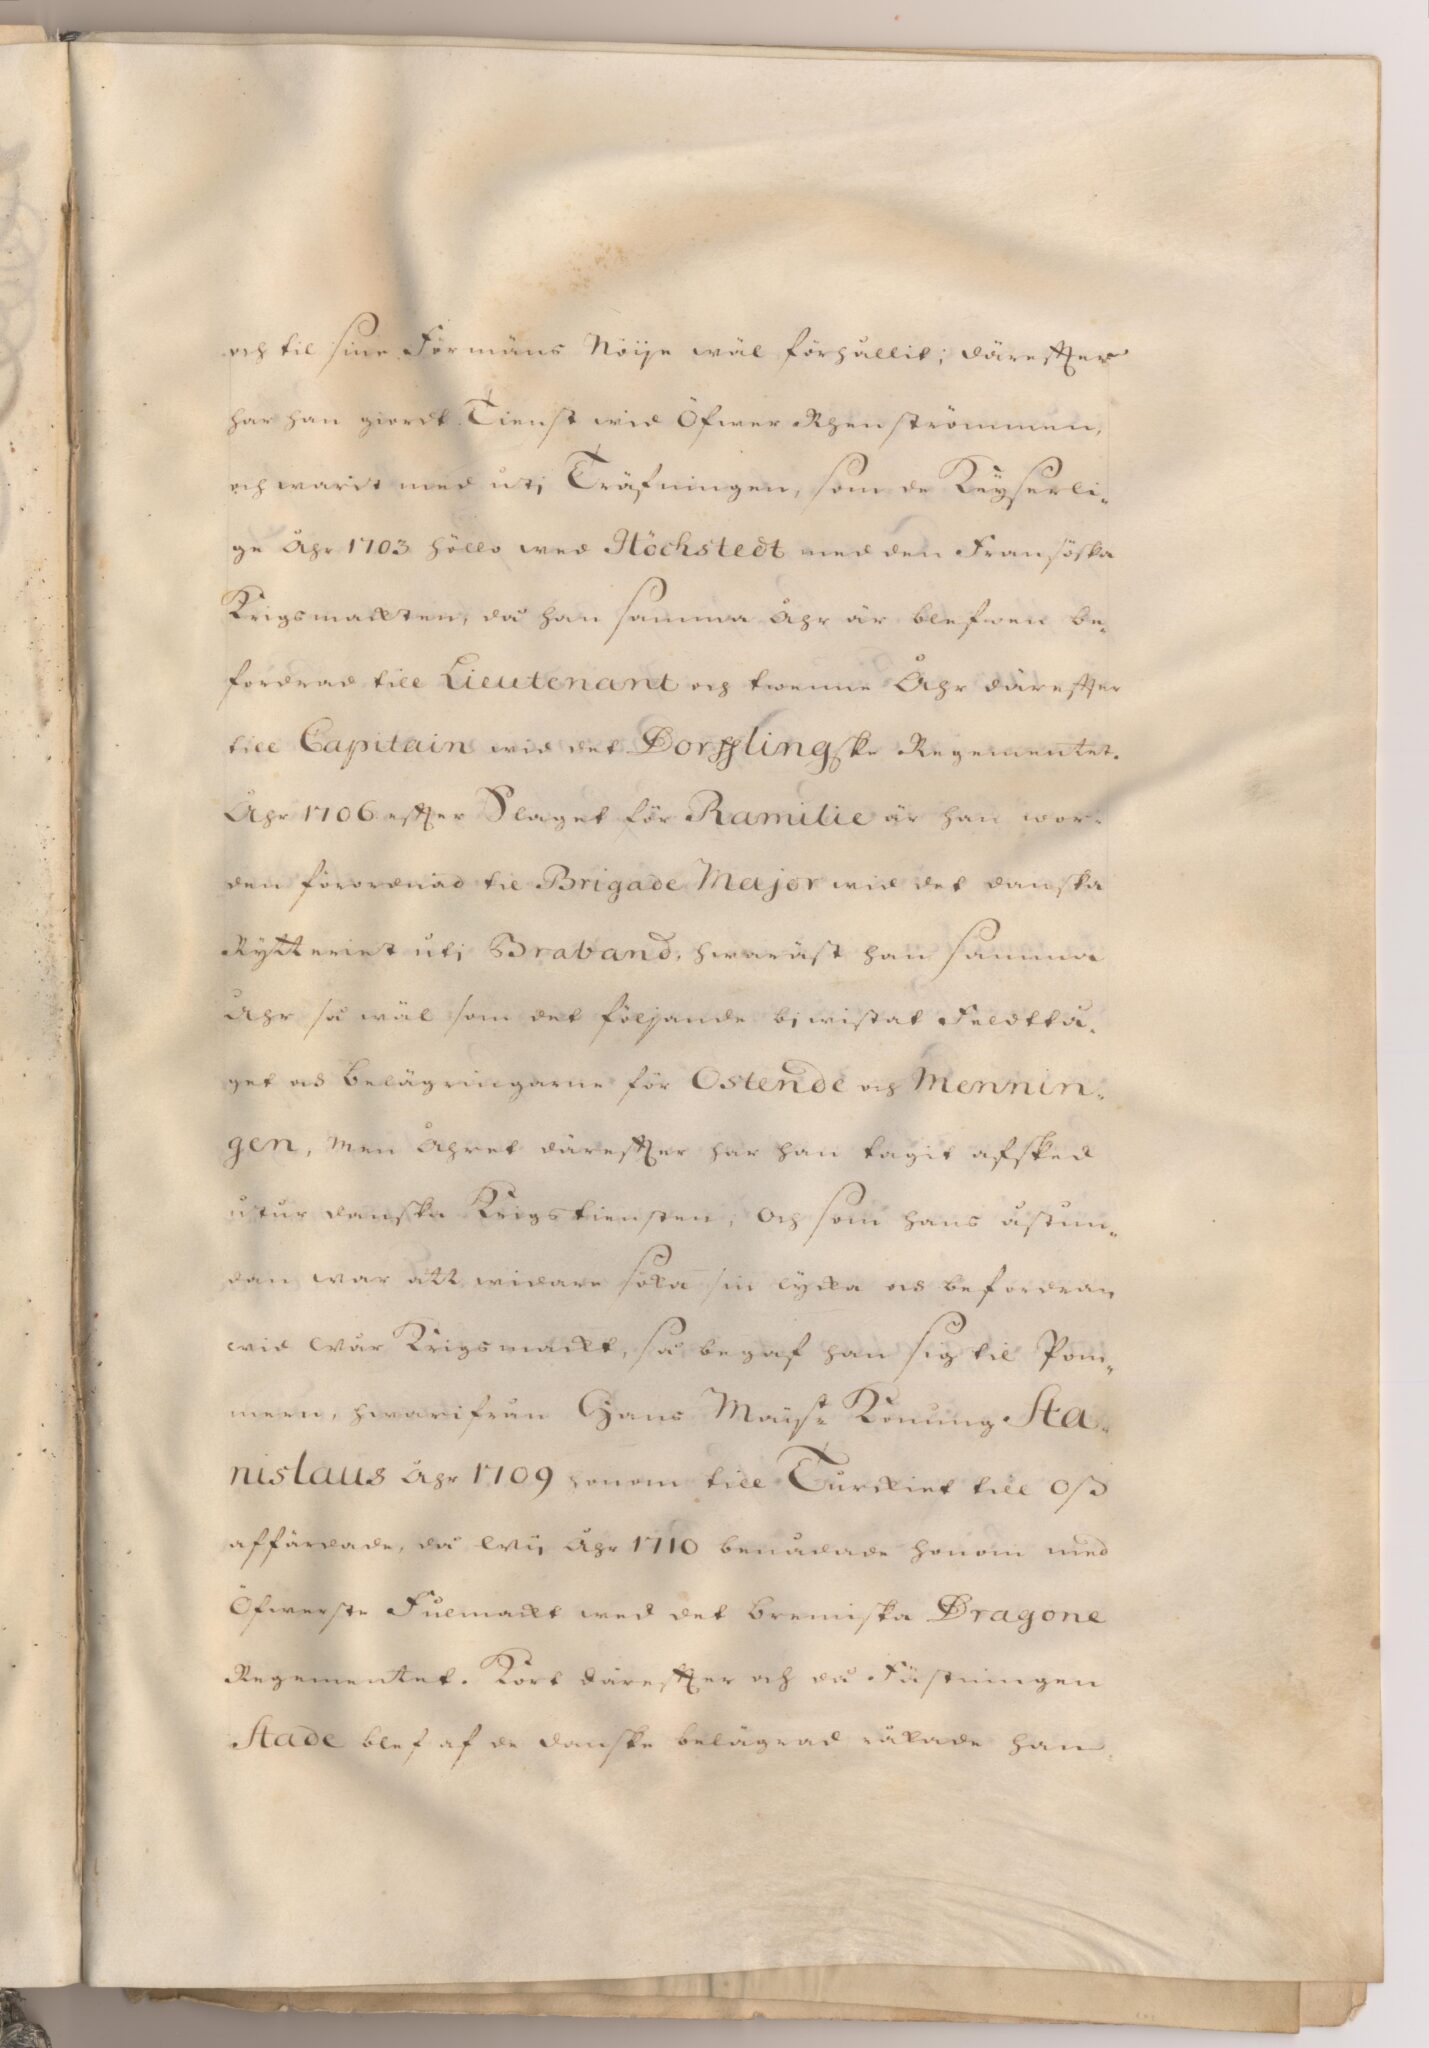 och til sine Förmäns Nöije wäl förhållit; därefter
har han giordt Tienst wid Öfwer Rhenströmmen,
och warit med uti Träfningen, som de Keyserli-
ge Åhr 1703 höllo wed Höchstedt med den Fransöska
Krigsmackten, då han samma Åhr är blefwen be-
fordrad till Lieutenant och twenne Åhr därefter
till Capitain wid det Dorfflingske Regementet.
Åhr 1706 efter Slaget för Ramilie är han wor-
den förordnad til Brigade Major wid det danska
Rytteriet uti Braband, hwaräst han samma
Åhr så wäl som det följande biwistat Feldttå-
get och belägringarne för Ostende och Mennin-
gen, men Åhret därefter har han tagit afsked
utur danska Krigstiensten, och som hans åstun-
dan war att widare söka sin lycka och befordran
wid Wår Krigsmackt, så begaf han sig til Pom-
mern, hwarifrån Hans Maijst Konung Sta-
nislaus Åhr 1709 honom till Turckiet till Oß
affärdade, då Wij Åhr 1710 benådade honom med
Öfwerste Fulmackt wed det bremiska Dragone
Regementet. Kort därefter och då Fästningen
Stade blef af de danske belägrad råkade han